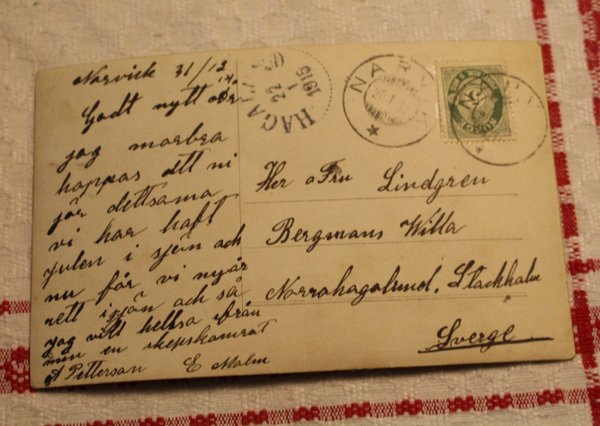 Narvik 31/12
14
Godt nytt år
jag mår bra
hoppas att ni
jör dettsama
vi har haft
julen i sjön och
nu får vi nyår
rett i sjön och så
jag vill hellsa från
min en skepskamrat
A Petterson E Malm
HAGALUND
22 1
1915
NARVIK
NARVIK
NORGE
Her o Fru Lindgren
Bergmans Willa
Norrahagalund. Stackhalm
Sverge